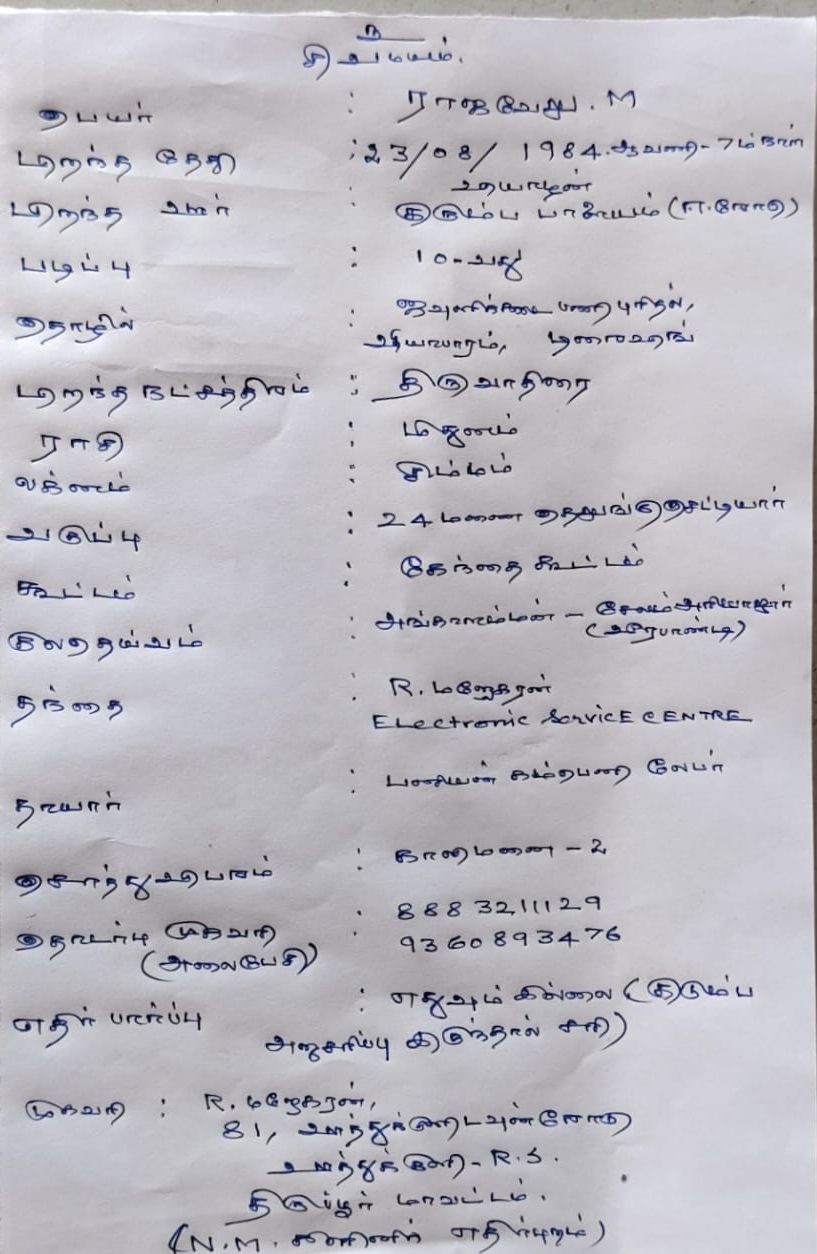 உ
சிவமயம்.
பெயர் : ராஜவேலு. M
பிறந்த தேதி : 23/08/1984. ஆவணி - 7ம் நாள்
பிறந்த ஊர் : உதயாழன்
குடும்ப பாளையம்
படிப்பு : 10-வது
தொழில் : ஜவுளிக்கடை பணிபுரிதல்,
வியாபாரம்,
பிறந்த நட்சத்திரம் : திருவாதிரை
ராசி : மிதுனம்
லக்னம் : சிம்மம்
வகுப்பு : 24 மனை தெலுங்கு செட்டியார்
கூட்டம் : கேந்தை கூட்டம்
குலதெய்வம் : அங்காளம்மன் - சேலம் அரியானூர்
(உரேபாண்டி)
தந்தை : R. மனோகரன்
Electronic Service CENTRE
தாயார் : பனியன் கம்பெனி லேபர்
சொத்து விபரம் : காலிமனை - 2
தொடர்பு முகவரி : 8883211129
(அலைபேசி) 9360893476
எதிர் பார்ப்பு : எதுவும் இல்லை (குடும்ப
அனுசரிப்பு இருந்தால் சரி)
முகவரி : R. மனோகரன்,
81, ஊத்துக்குளி டவுன் ரோடு
ஊத்துக்குளி - R.S.
திருப்பூர் மாவட்டம்.
(N.M. கிளினிக் எதிர்புறம்)